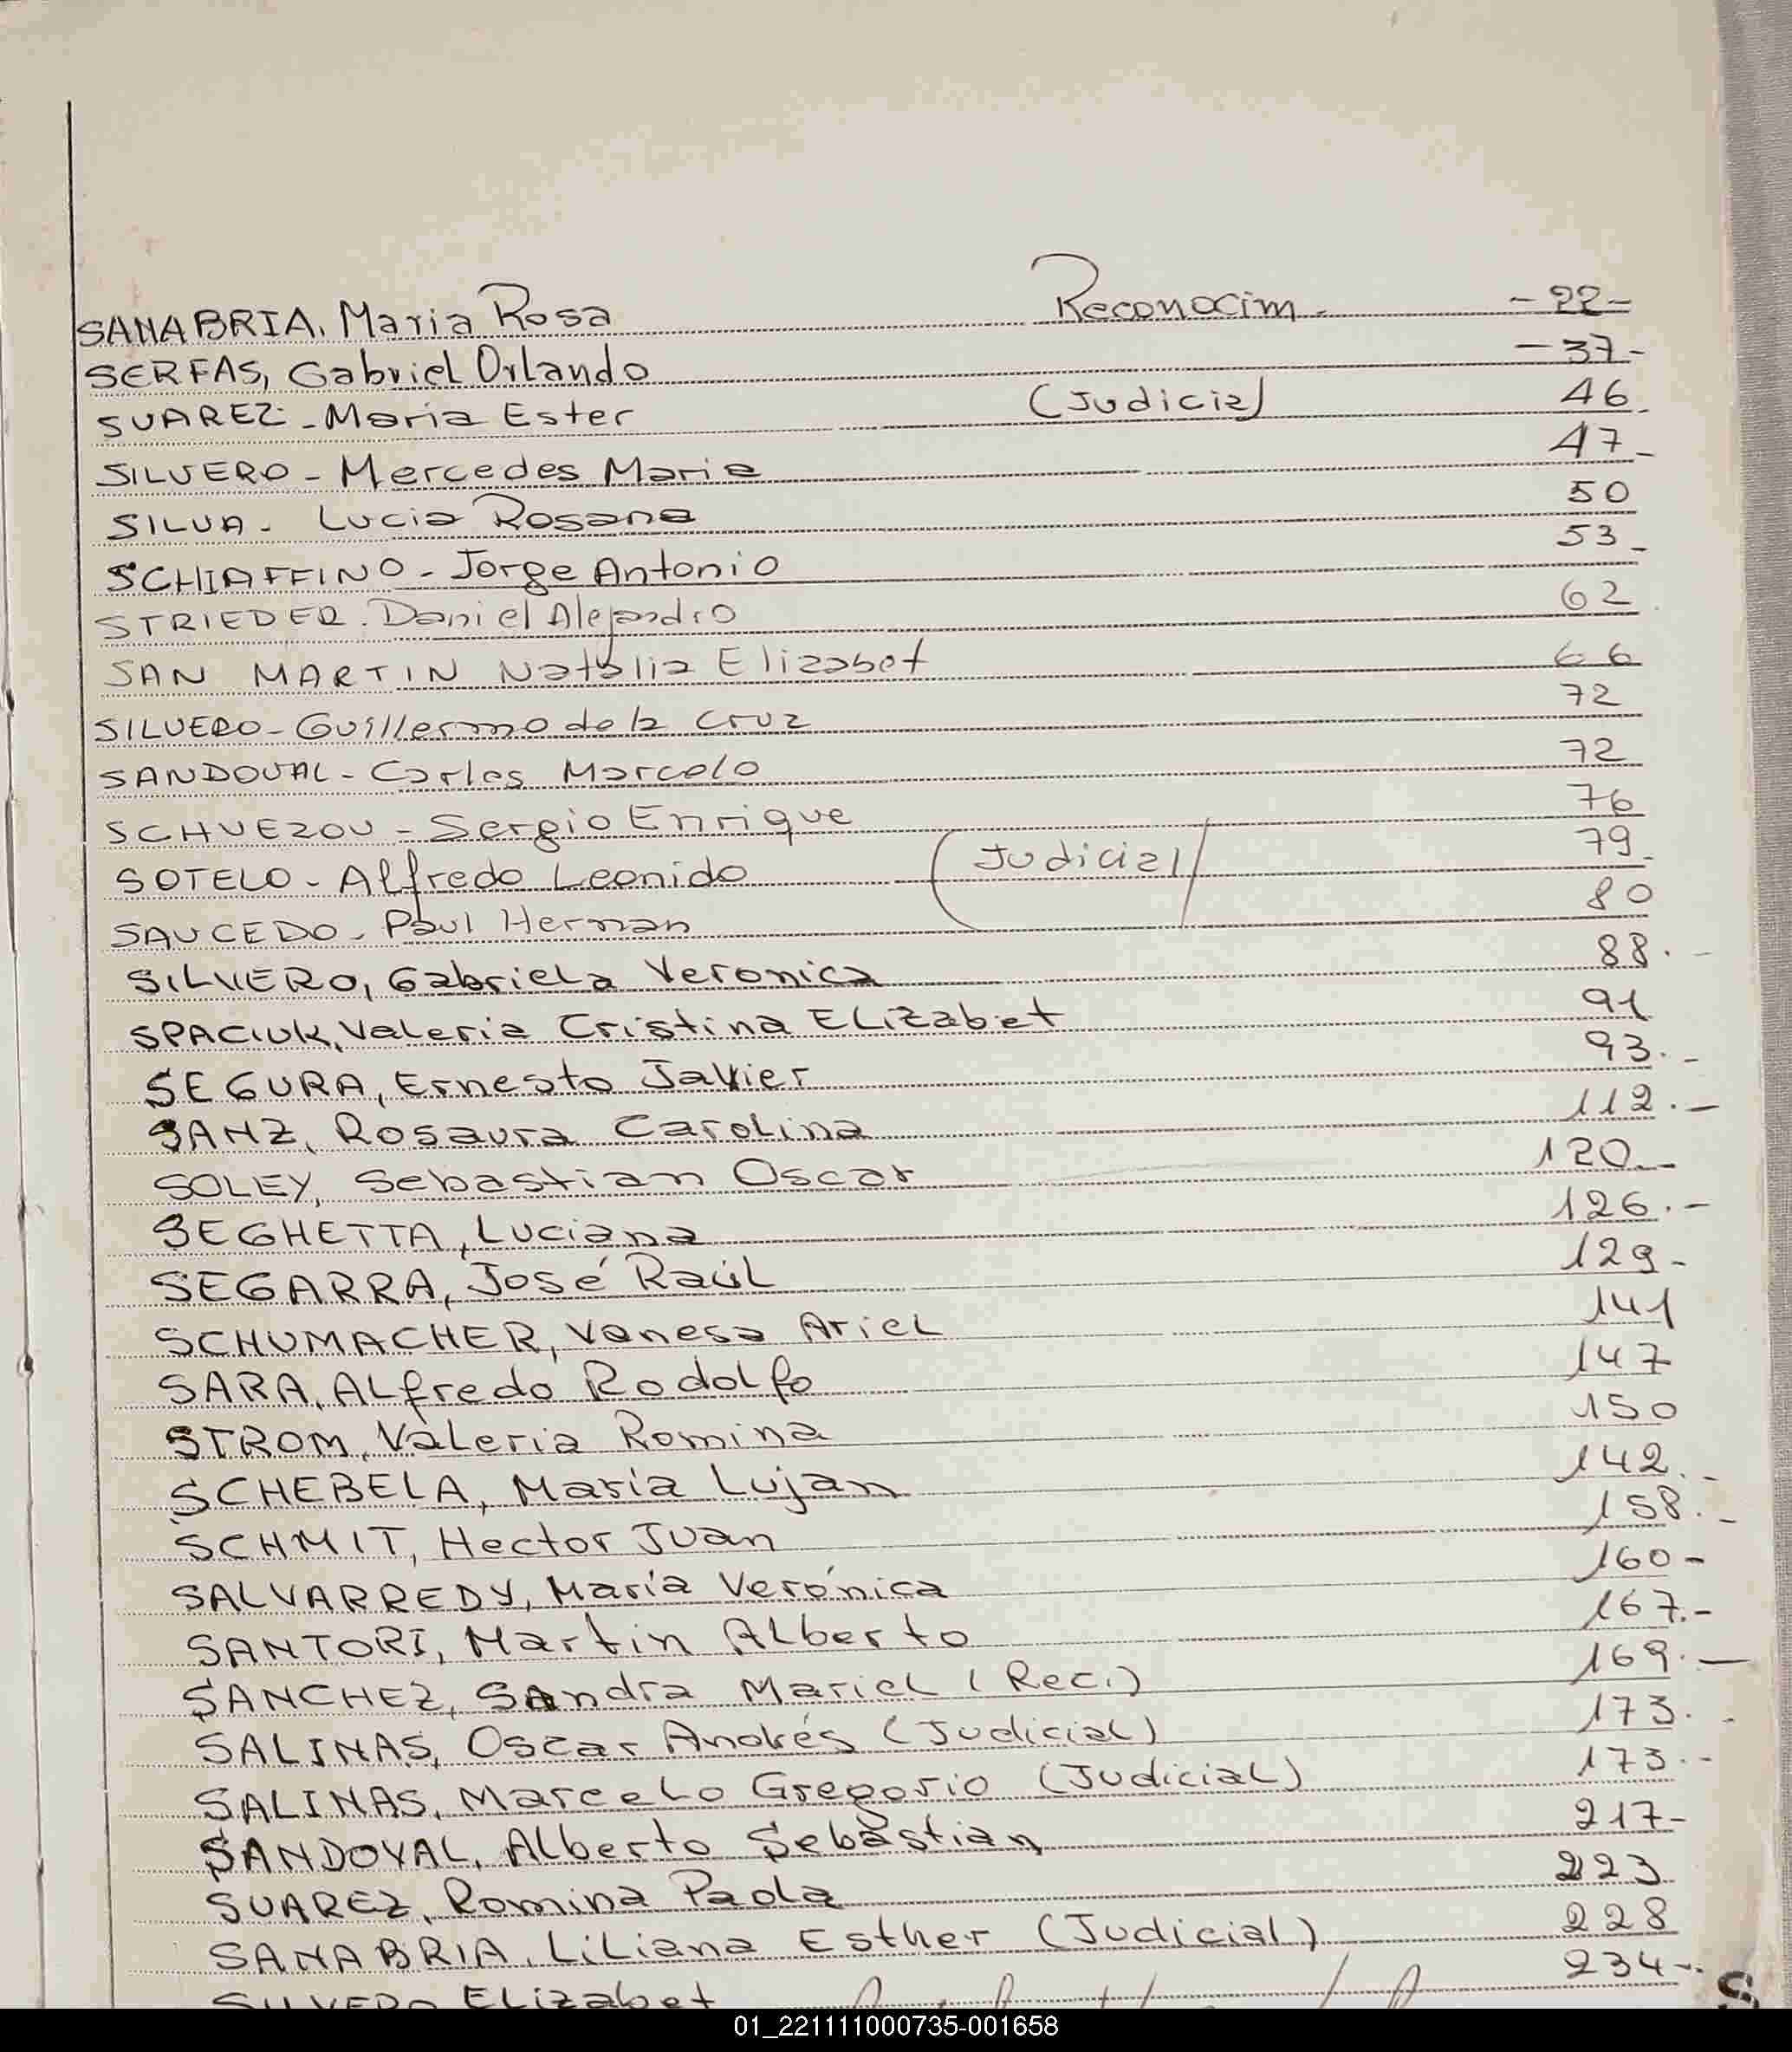 SANABRIA, Maria Rosa Reconocim. - 22 -
SERFAS, Gabriel Orlando - 37 -
SUAREZ - Maria Ester (Judicial) 46.
SILVERO - Mercedes Maria 47 -
SILVA - Lucia Rosana 50
SCHIAFFINO - Jorge Antonio 53 -
STRIEDER. Daniel Alejandro 62
SAN MARTIN Natalia Elizabet 66
SILVERO - Guillermo de la Cruz 72
SANDOVAL - Carlos Marcelo 72
SCHVEZOV - Sergio Enrique 76
SOTELO - Alfredo Leonido (Judicial) 79.
SAUCEDO - Paul Hernan 80
SILVERO, Gabriela Veronica 88. -
SPACIUK, Valeria Cristina ELizabet 91
SEGURA, Ernesto Javier 93. -
SANZ, Rosaura Carolina 112. -
SOLEY, Sebastian Oscar 120. -
SEGHETTA, Luciana 126. -
SEGARRA, José Raúl 129 -
SCHUMACHER, Vanesa Ariel 141
SARA, Alfredo Rodolfo 147
STROM, Valeria Romina 150
SCHEBELA, María Lujan 142. -
SCHMIT, Hector Juan 158. -
SALVARREDY, María Verónica 160 -
SANTORI, Martin Alberto 167. -
SANCHEZ, Sandra Mariel (Rec.) 169. -
SALINAS, Oscar Andrés (Judicial) 173. -
SALINAS, Marcelo Gregorio (Judicial) 173. -
SANDOVAL, Alberto Sebastian 217 -
SUAREZ, Romina Paola 223
SANABRIA, Liliana Esther (Judicial) 228
SILVERO Elizabet 234 -.
S
01_221111000735-001658